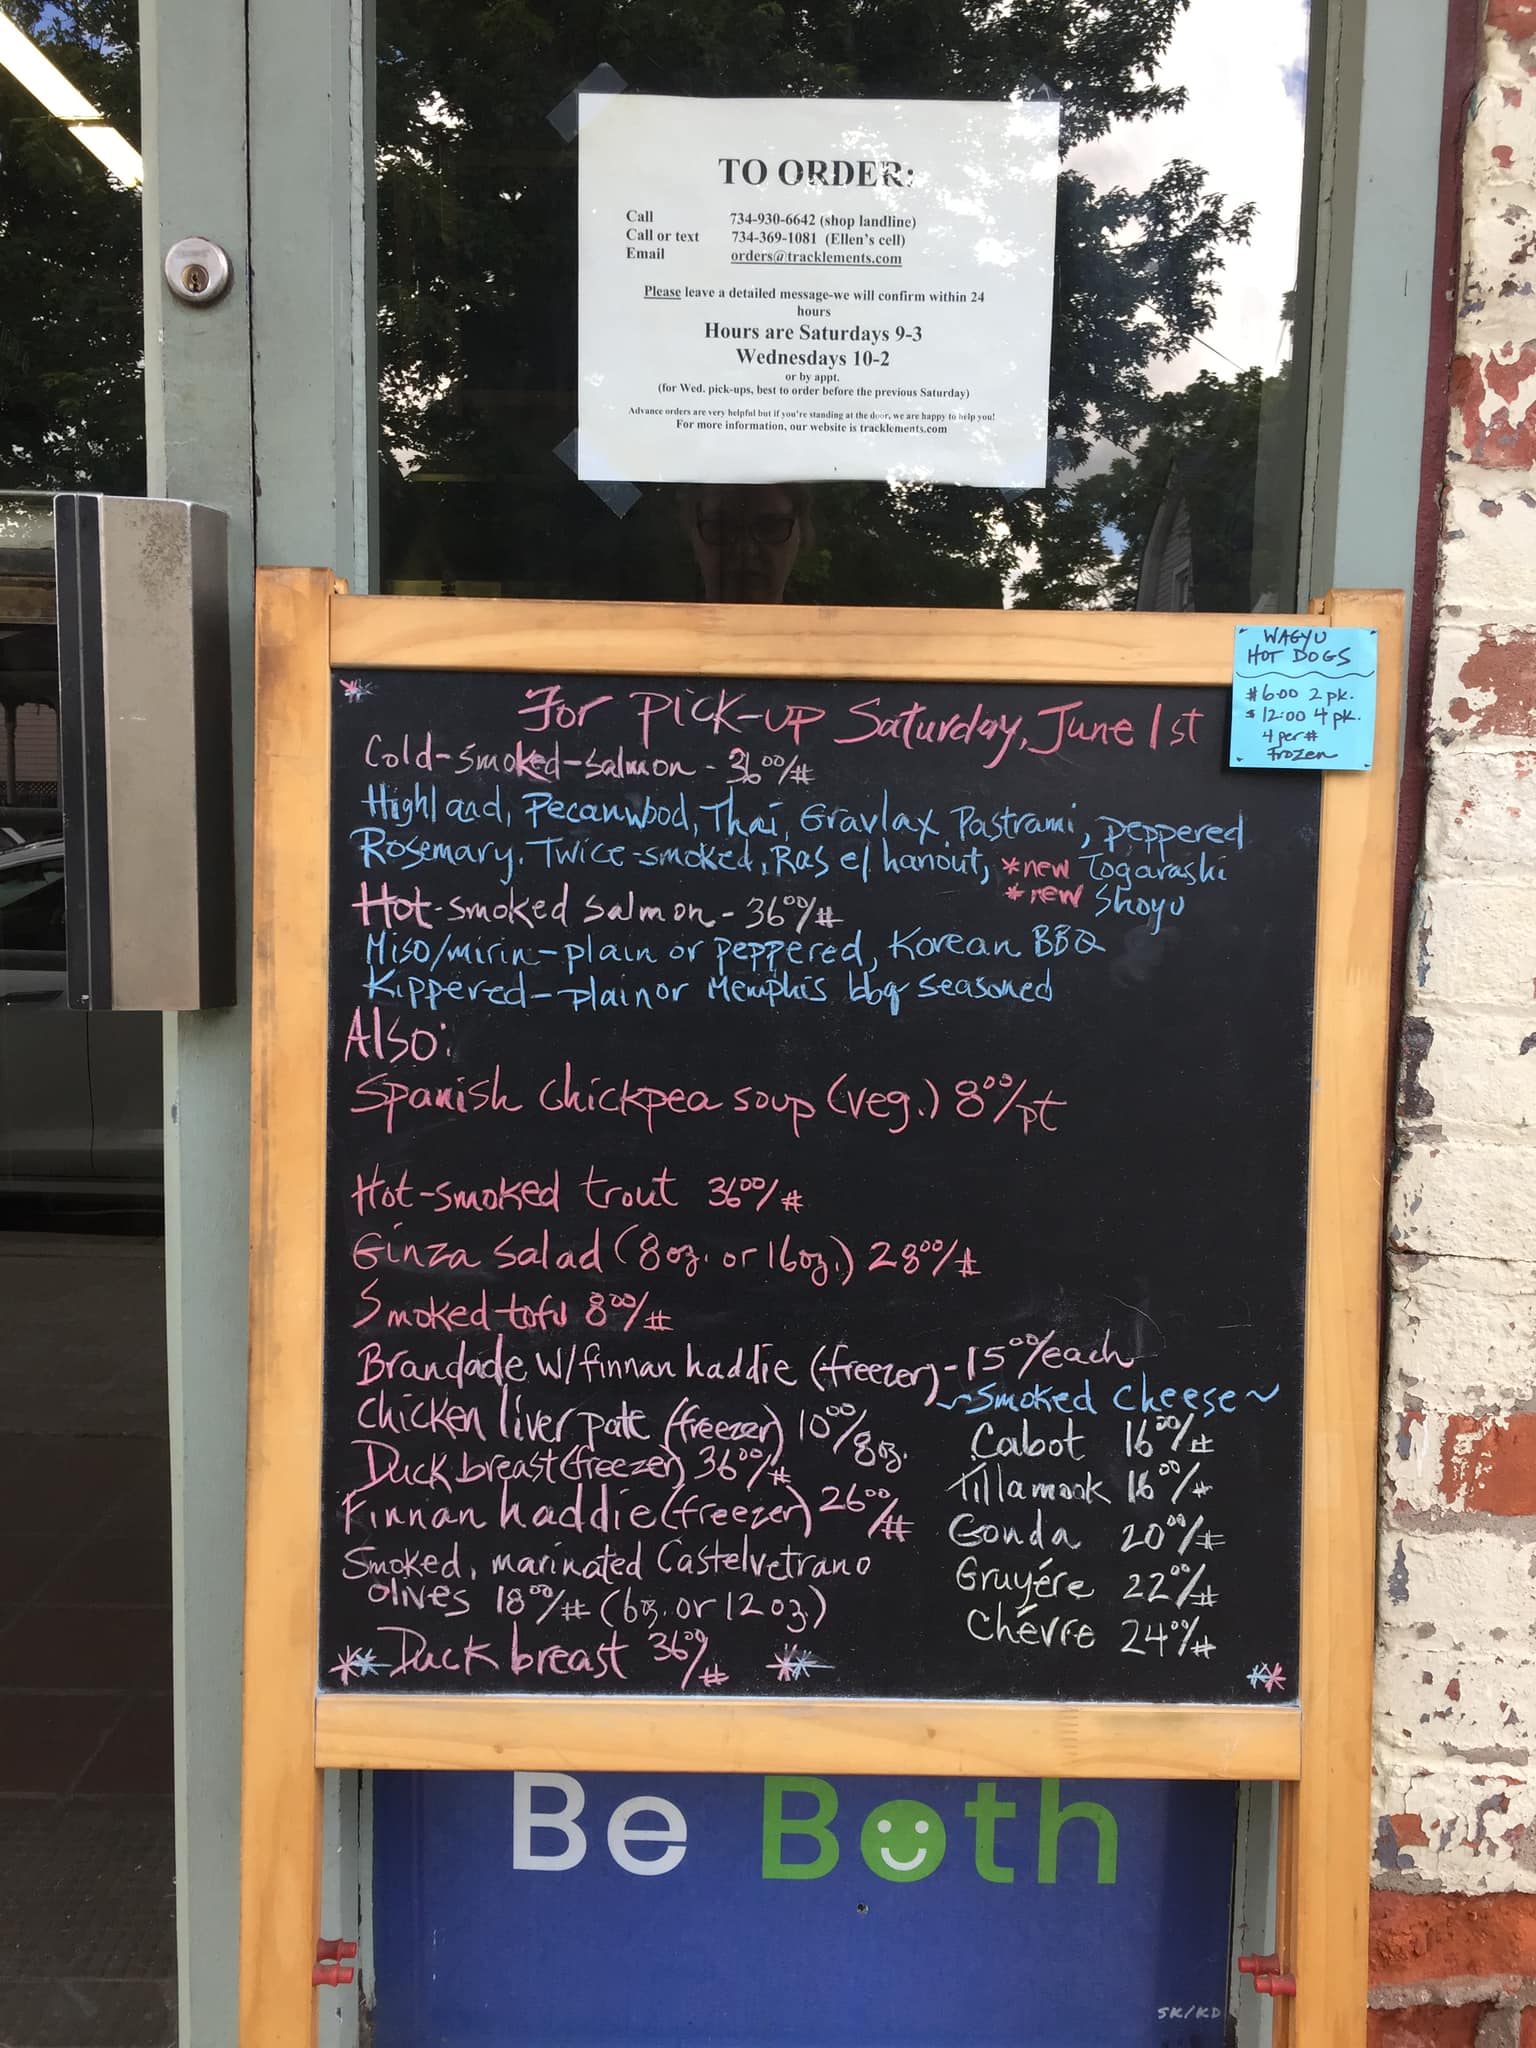 TO ORDER:
Call 734-930-6642 (shop landline)
Call or text 734-369-1081 (Ellen's cell)
Email orders@tracklements.com
Please leave a detailed message-we will confirm within 24
hours
Hours are Saturdays 9-3
Wednesdays 10-2
or by appt.
(for Wed. pick-ups, best to order before the previous Saturday)
Advance orders are very helpful but if you're standing at the door, we are happy to help you!
For more information, our website is tracklements.com
WAGYU
HOT DOGS
$6.00 2 pk.
$12.00 4 pk.
4 per #
Frozen
For Pick-up Saturday, June 1st
Cold-smoked-salmon - 36⁰⁰/#
Highland, Pecanwood, Thai, Gravlax, Pastrami, peppered
Rosemary, Twice-smoked, Ras el hanout, *new Togaraski
*new Shoyu
Hot-smoked salmon - 36⁰⁰/#
Miso/mirin-plain or peppered, Korean BBQ
Kippered-plain or Memphis bbq seasoned
Also:
Spanish Chickpea soup (veg.) 8⁰⁰/pt
Hot-smoked trout 36⁰⁰/#
Ginza salad (8oz. or 16oz.) 28⁰⁰/#
Smoked tofu 8⁰⁰/#
Brandade w/finnan haddie (freezer) - 15⁰⁰/each
Chicken liver pate (freezer) 10⁰⁰/8oz.
Duck breast (freezer) 36⁰⁰/#
Finnan haddie (freezer) 26⁰⁰/#
Smoked, marinated Castelvetrano
olives 18⁰⁰/# (6oz. or 12oz.)
** Duck breast 36⁰⁰/# **
~Smoked Cheese~
Cabot 16⁰⁰/#
Tillamook 16⁰⁰/#
Gouda 20⁰⁰/#
Gruyére 22⁰⁰/#
Chévre 24⁰⁰/#
**
Be Both
SK/KD